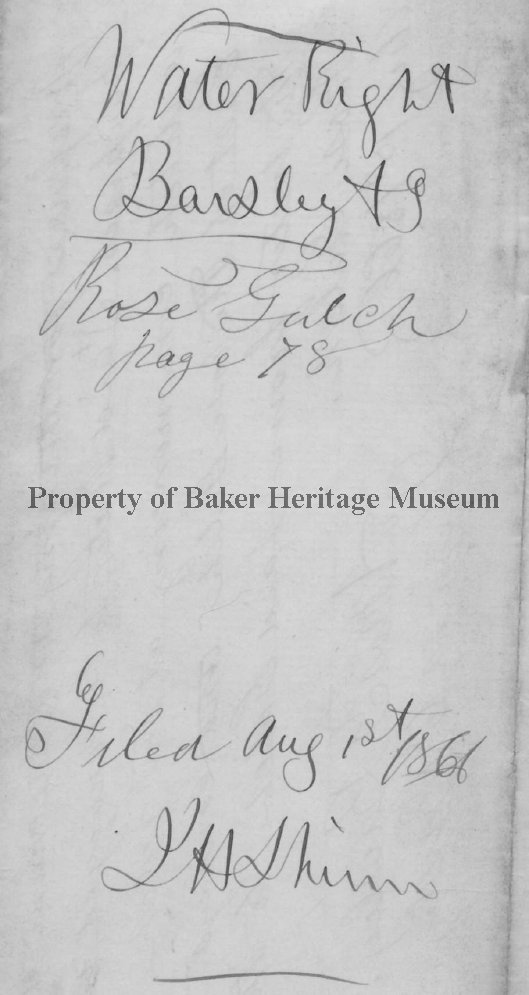 Water Right
Barsley & 
Rose Gulch
page 78
Property of Baker Heritage Museum
Filed Aug 1st 1866
H Shinn